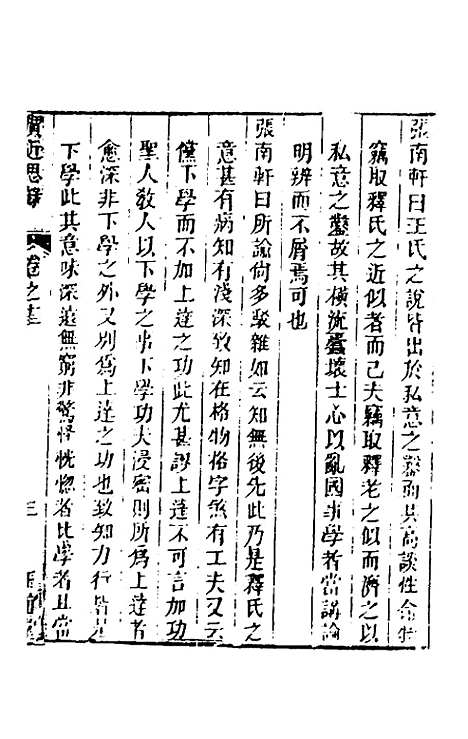 張南軒曰王氏之說皆出於私意之鑿而其高談性命特
竊取釋氏之近似者而已夫竊取釋老之似而濟之以
私意之鑿故其橫流蠹壞士心以亂國事學者當講論
明辨而不屑焉可也
張南軒曰所諭尙多駁雜如云知無後先此乃是釋氏之
意甚有病知有淺深致知在格物格字煞有工夫又云
儻下學而不加上達之功此尤甚謬上達不可言加功
聖人敎人以下學之事下學功夫浸密則所爲上達者
愈深非下學之外又別爲上達之功也致知力行皆是
下學此其意味深遠無窮非驚怪恍惚者比學者且當
續近思錄
卷之
三
正誼堂